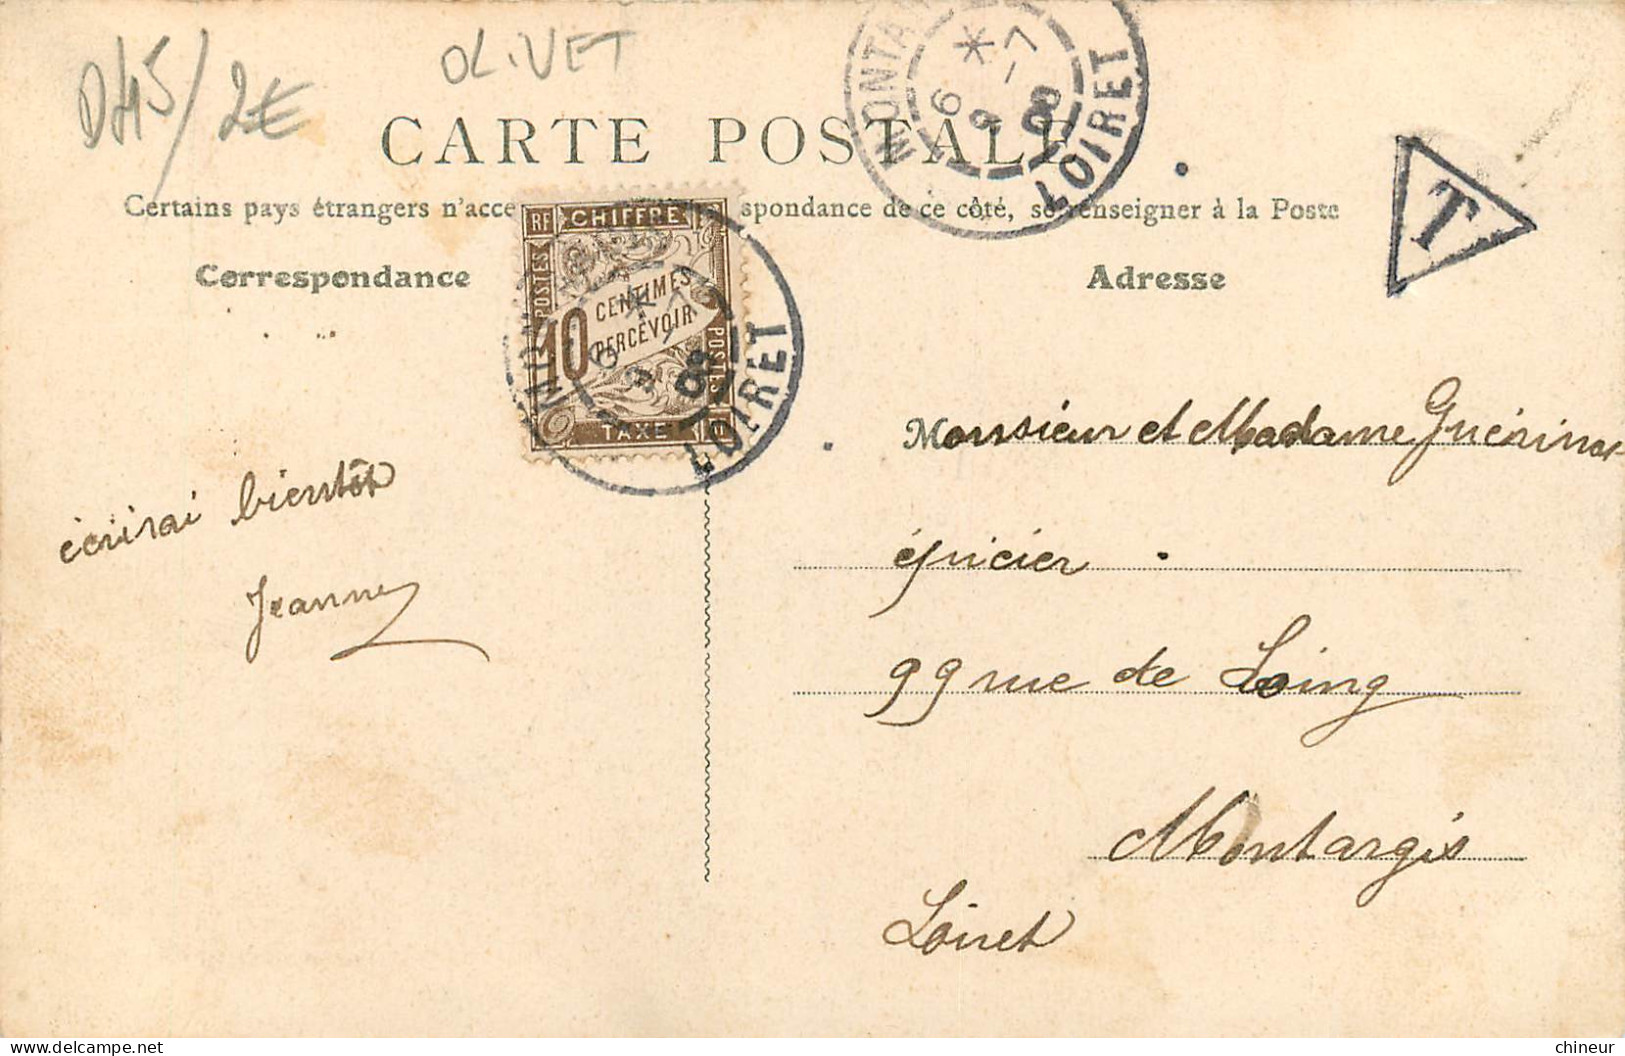 D45/2€
OLIVET
CARTE POSTALE
Certains pays étrangers n'acce spondance de ce côté, se renseigner à la Poste
Correspondance
Adresse
RF CHIFFRE
POSTES
10 CENTIMES
PERCEVOIR
POSTES
TAXE
LOIRET
08
MONTA
LOIRET
08
T
Monsieur et Madame Guérin
épicier
99 rue de Loing
Montargis
Loiret
écrirai bientôt
Jeanne
chineur